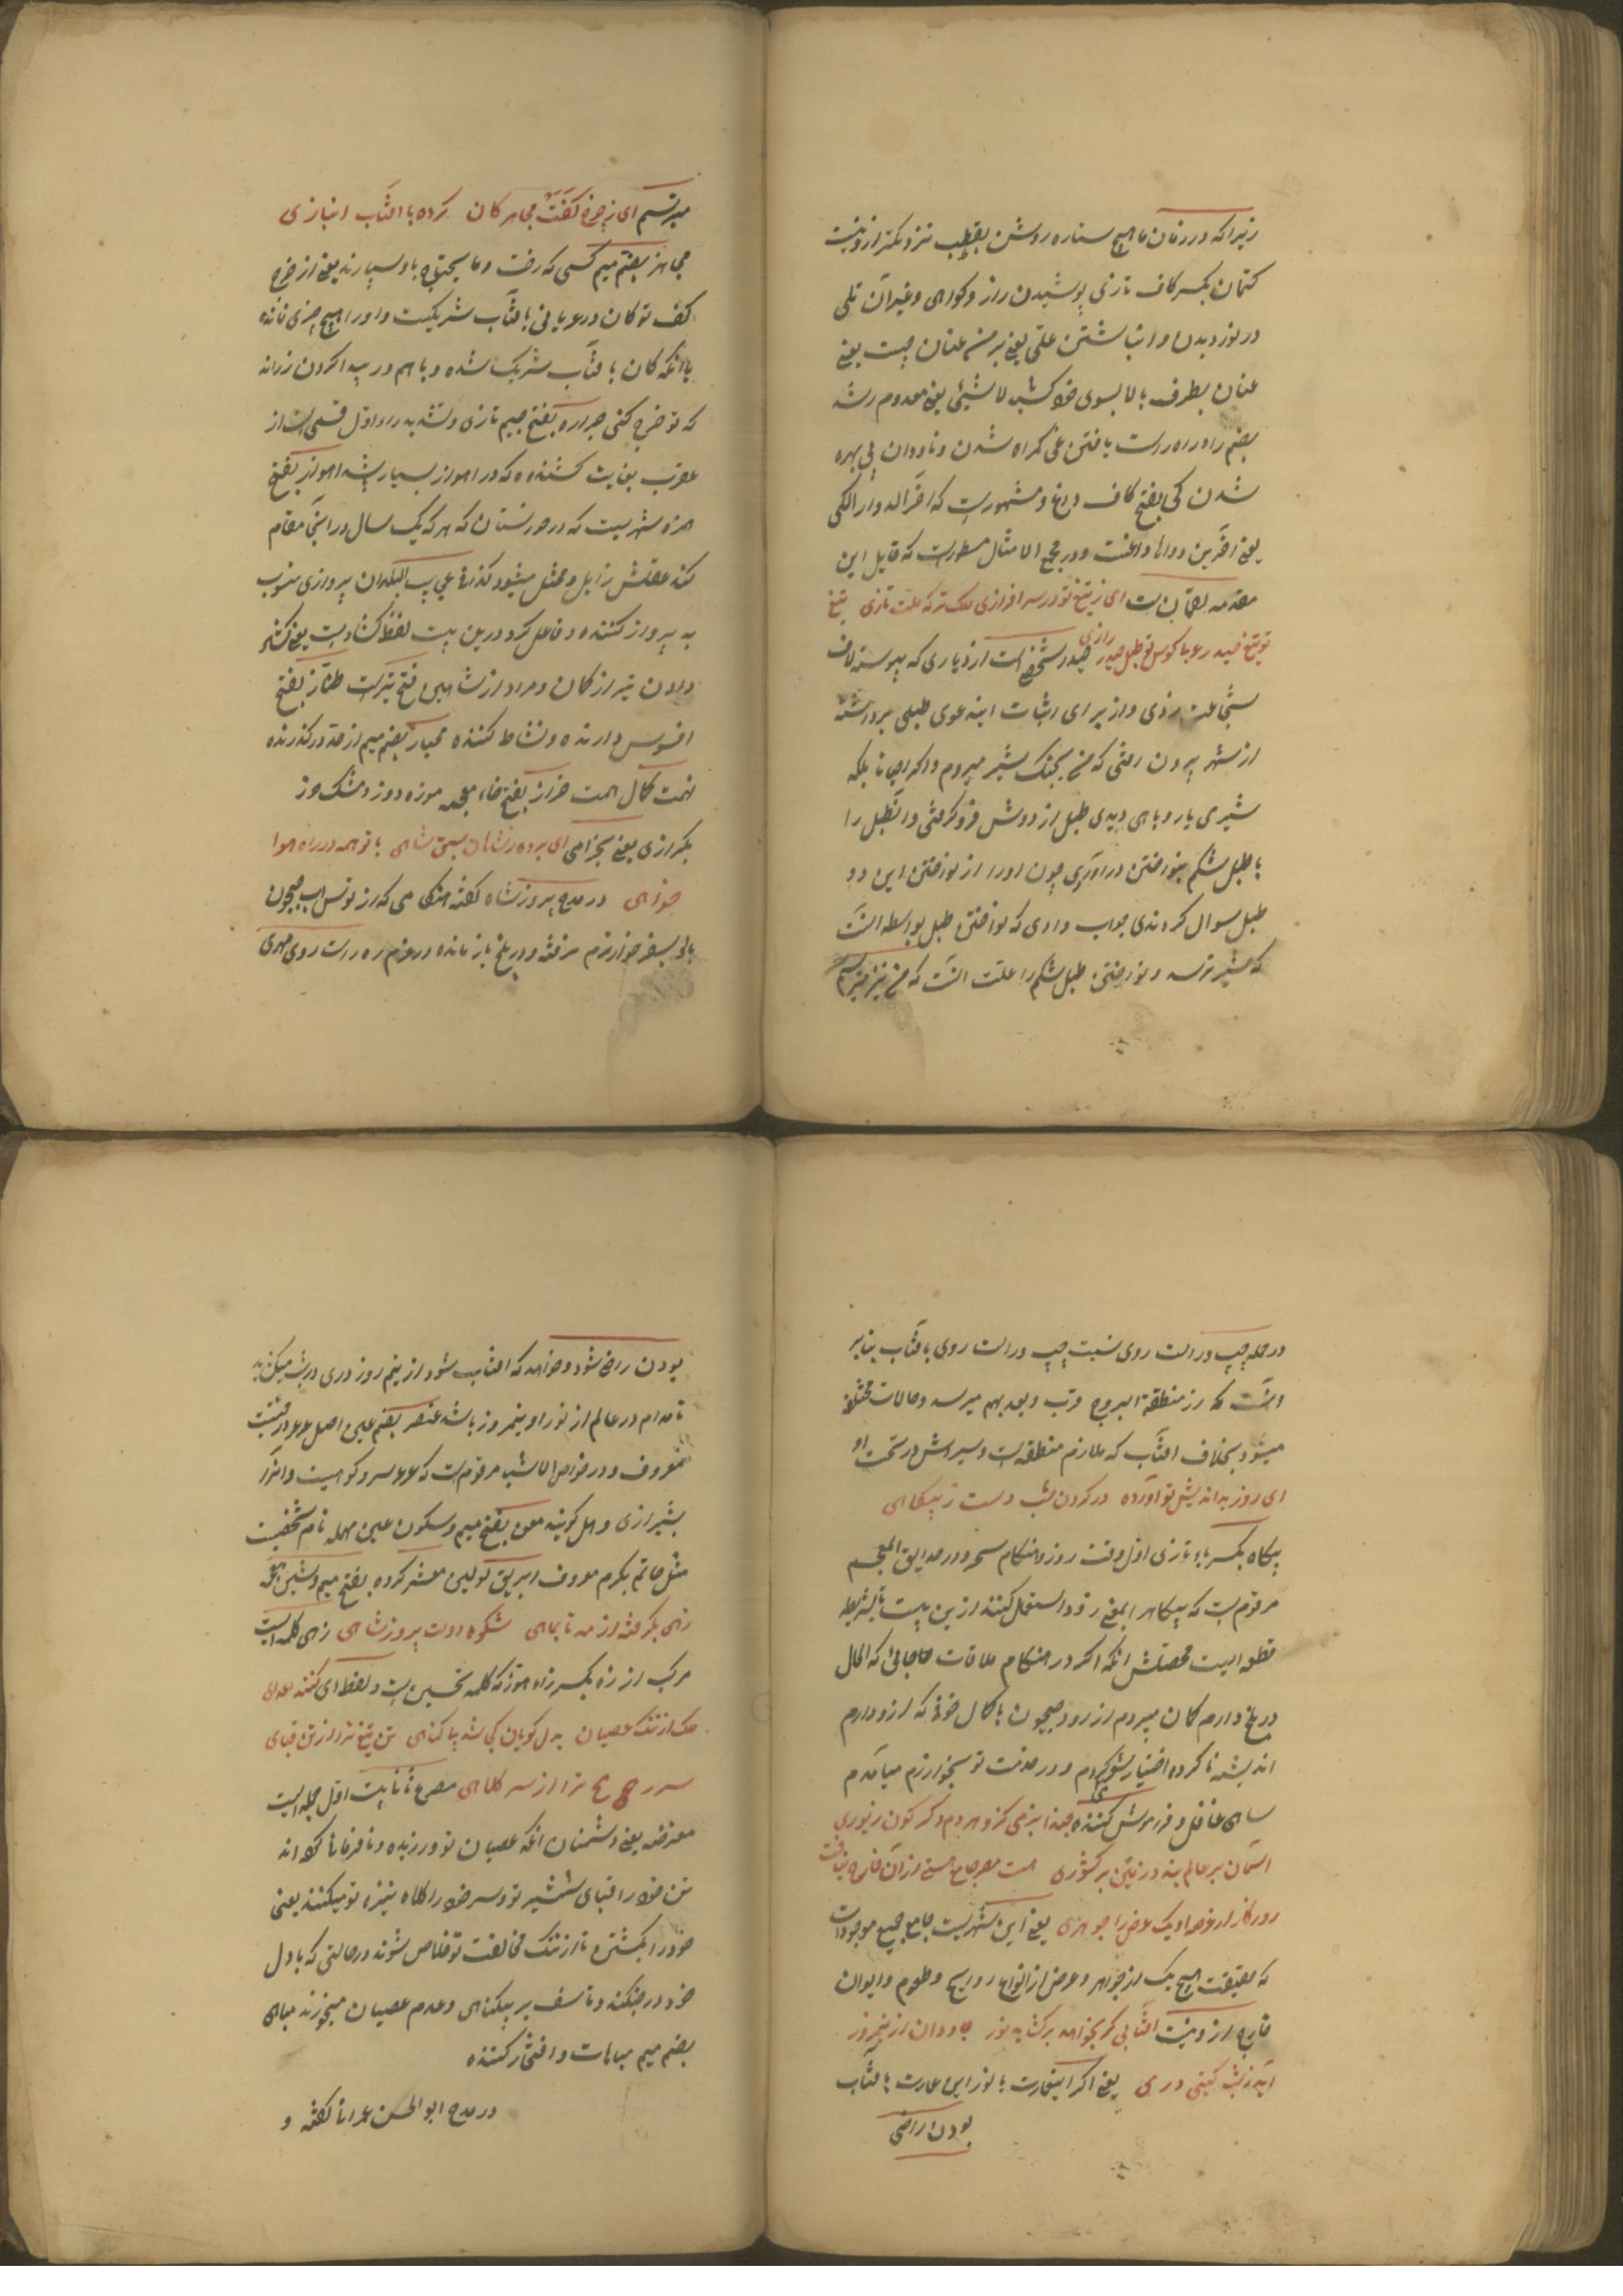 زیرا که در زمان ما هیچ ستاره روشن بقطب نزدیکتر ازو نیست
کتمان بکسر کاف تازی پوشیدن راز و کواهی و غیر آن تلی
در نوردیدن و انباشتن علتی یعنی برمن عنان چیست یعنی
عنان بطرف بالا بسوی خود کشید لا شیئی یعنی معدوم رشد
بضم را و راه راست یافتن غی کمراه شدن و نادان بی بهره
شدن کی بفتح کاف داغ و مشهورست که اخر الدوا الکی
یعنی اخرین دواها داغست و در مجمع الامثال مسطورست که قایل این
مقدمه لقمان است ای ز تیغ تو در سرافرازی ملک ترکه ملت تازی تیغ
تو تیغ حیدر و عبا کوس تو طبل حیدر رازی حیدر شخصی است از دیار ری که پیوسته لاف
شجاعت زدی و از برای اثبات این دعوی طبلی برداشته
از شهر بیرون رفتی که من بجنک شیر میروم و اکر احیانا بلکه
شیری یا روباهی دیدی طبل از دوش فرو کرفتی و آن طبل را
با طبل شکم بنواختن در آوردی چون او را از نواختن این دو
طبل سوال کردندی جواب دادی که نواختن طبل بواسطه آنست
که شیر ترسد و نواختن طبل شکم را علت آنست که من نیز میترسم
میترسم ای ز خرج کفت مجاهز کان کرده با افتاب انبازی
مجاهز بضم میم کسی که رخت و مایحتاج باو سپارند یعنی از خرج
کف تو کان در عریانی با افتاب شریکست و او را هیچ چیزی نمانده
یا آنکه کان با افتاب شریک شده و با هم در پیدا کردن زراند
که تو خرج کنی جراره بفتح جیم تازی و تشدید راء اول قسمی است از
عقرب بغایت کشنده که در اهواز بسیار باشد اهواز بفتح
همزه شهریست که در خوزستان که هرکه یک سال در انجا مقام
کند عقلش زایل و مختل میشود کذا فی عجایب البلدان پروازی منسوب
به پرواز کننده و فاعل کرد درین بیت لفظ کشادست یعنی کشاد
دادن تیر از کان و مراد از شاهین فتح تیرست طناز بفتح
افسوس دارنده و نشاط کننده مجتاز بضم میم از حد درکذرنده
نهمت کمال همت خراز بفتح خاء معجمه موزه دوز و مشک دوز
بکرازی یعنی بخرامی ای برده ز شاهان سبق شاهی با تو همه در راه هوا
خواهی در مدح پیروزشاه کفته هنکامی که از نونس اب جیحون
بالو بسفر خوارزم نرفته و در بلخ باز مانده در عزم ره راست روی مهری
در جمله چپ و راست روی نسبت چپ و راست روی با افتاب بنا بر
آنست که از منطقة البروج قرب و بعد بهم میرسد و حالات مختلف
میشود بخلاف افتاب که ملازم منطقه است و سیرش در تحت او
ای روز بداندیش تو آورده در کردن شب دست ز بیکاهی
بیکاه بکسر باء تازی اول وقت روز و هنکام سحر و در حدایق المعجم
مرقوم است که بیکاه را بمعنی زود استعمال کنند از بین بیت تا بشریطه
قطعه ایست محصلش آنکه اکر در هنکام ملاقات جانی که الحال
در بلخ دارم کمان میبردم از رود جیحون با کمال خوفی که ازو دارم
اندیشه ناکرده اختیار سفر کردم و در خدمت تو بخوارزم میآمدم
ساهی غافل و فراموش کننده حبذا بزمی کزو هر دم دکر کون زیوری
آسمان بر عالم بندد زمین بر کشوری هست مصر جامع هستی از آن خارج نیافت
روزکار از عرصه او یک عرض را جوهری یعنی این شهریست جامع جمیع موجودات
که بحقیقت هیچ یک از جواهر و عرض از انواع روایح و طعوم و الوان
خارج ازو نیست افتابی کر بخواهد برکشاید نور جاودان از نیمروز
اندر شب کیتی دری یعنی اکر اینعمارت با نور این عمارت با افتاب
بودن راضی
بودن راضی شود و خواهد که افتاب شود از نیمروز دری در شب میکشاید
تا مدام در عالم از نور او نیمروز باشد عنصر بضم عین اصل عرعر درختیست
معروف و در خواص الاشیا مرقومست که عرعر سرو کوهیست و آنرا
بشیرازی وهل کویند معن بفتح میم و سکون عین مهمله نام شخصیست
مثل حاتم بکرم معروف ابریق کولین معشر کروه بفتح میم و شین معجمه
زهی بکرفته از مه تا بماهی شکوه دولت پیروزشاهی زهی کلمه ایست
مرکب از زه بکسر زاء هوز که کلمه تحسین است و لفظ ای کنند اعدای
ملک از ننک عصیان بدل کویان کی شد بیکناهی تن تیغ ترا از تن قبای
سر رمح ترا از سر کلاهی مصرع ثانی بیت اول جمله ایست
معترضه یعنی دشمنان آنکه عصیان تو ورزیده و نافرمانی کرده اند
تن خود را قبای شمشیر تو و سر خود را کلاه نیزه تو میکنند یعنی
خود را بکشتن تا از ننک مخالفت تو خلاص شوند در حالتی که با دل
خود در جنکند و تاسف بر بیکناهی و عدم عصیان میخورند مباهی
بضم میم مباهات و افتخار کننده
در مدح ابو الحسن عمرانی کفته و